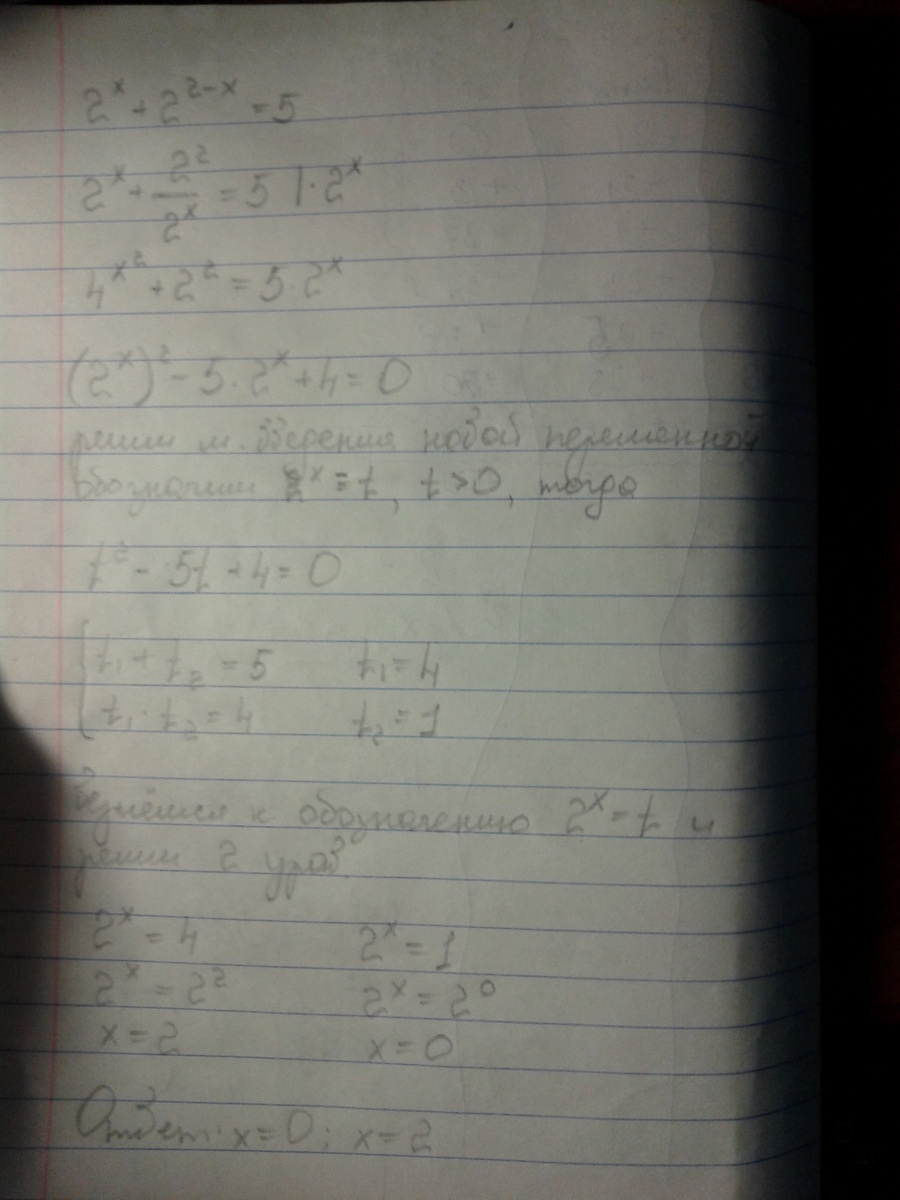 2^x + 2^(2-x) = 5
2^x + 2^2/2^x = 5 | · 2^x
4^x^2 + 2^2 = 5 · 2^x
(2^x)^2 - 5 · 2^x + 4 = 0
решим м. введения новой переменной
Обозначим 2^x = t, t > 0, тогда
t^2 - 5t + 4 = 0
{ t₁ + t₂ = 5 t₁ = 4
t₁ · t₂ = 4 t₂ = 1
Вернёмся к обозначению 2^x = t и
решим 2 урав.
2^x = 4 2^x = 1
2^x = 2^2 2^x = 2^0
x = 2 x = 0
Ответ: x = 0; x = 2